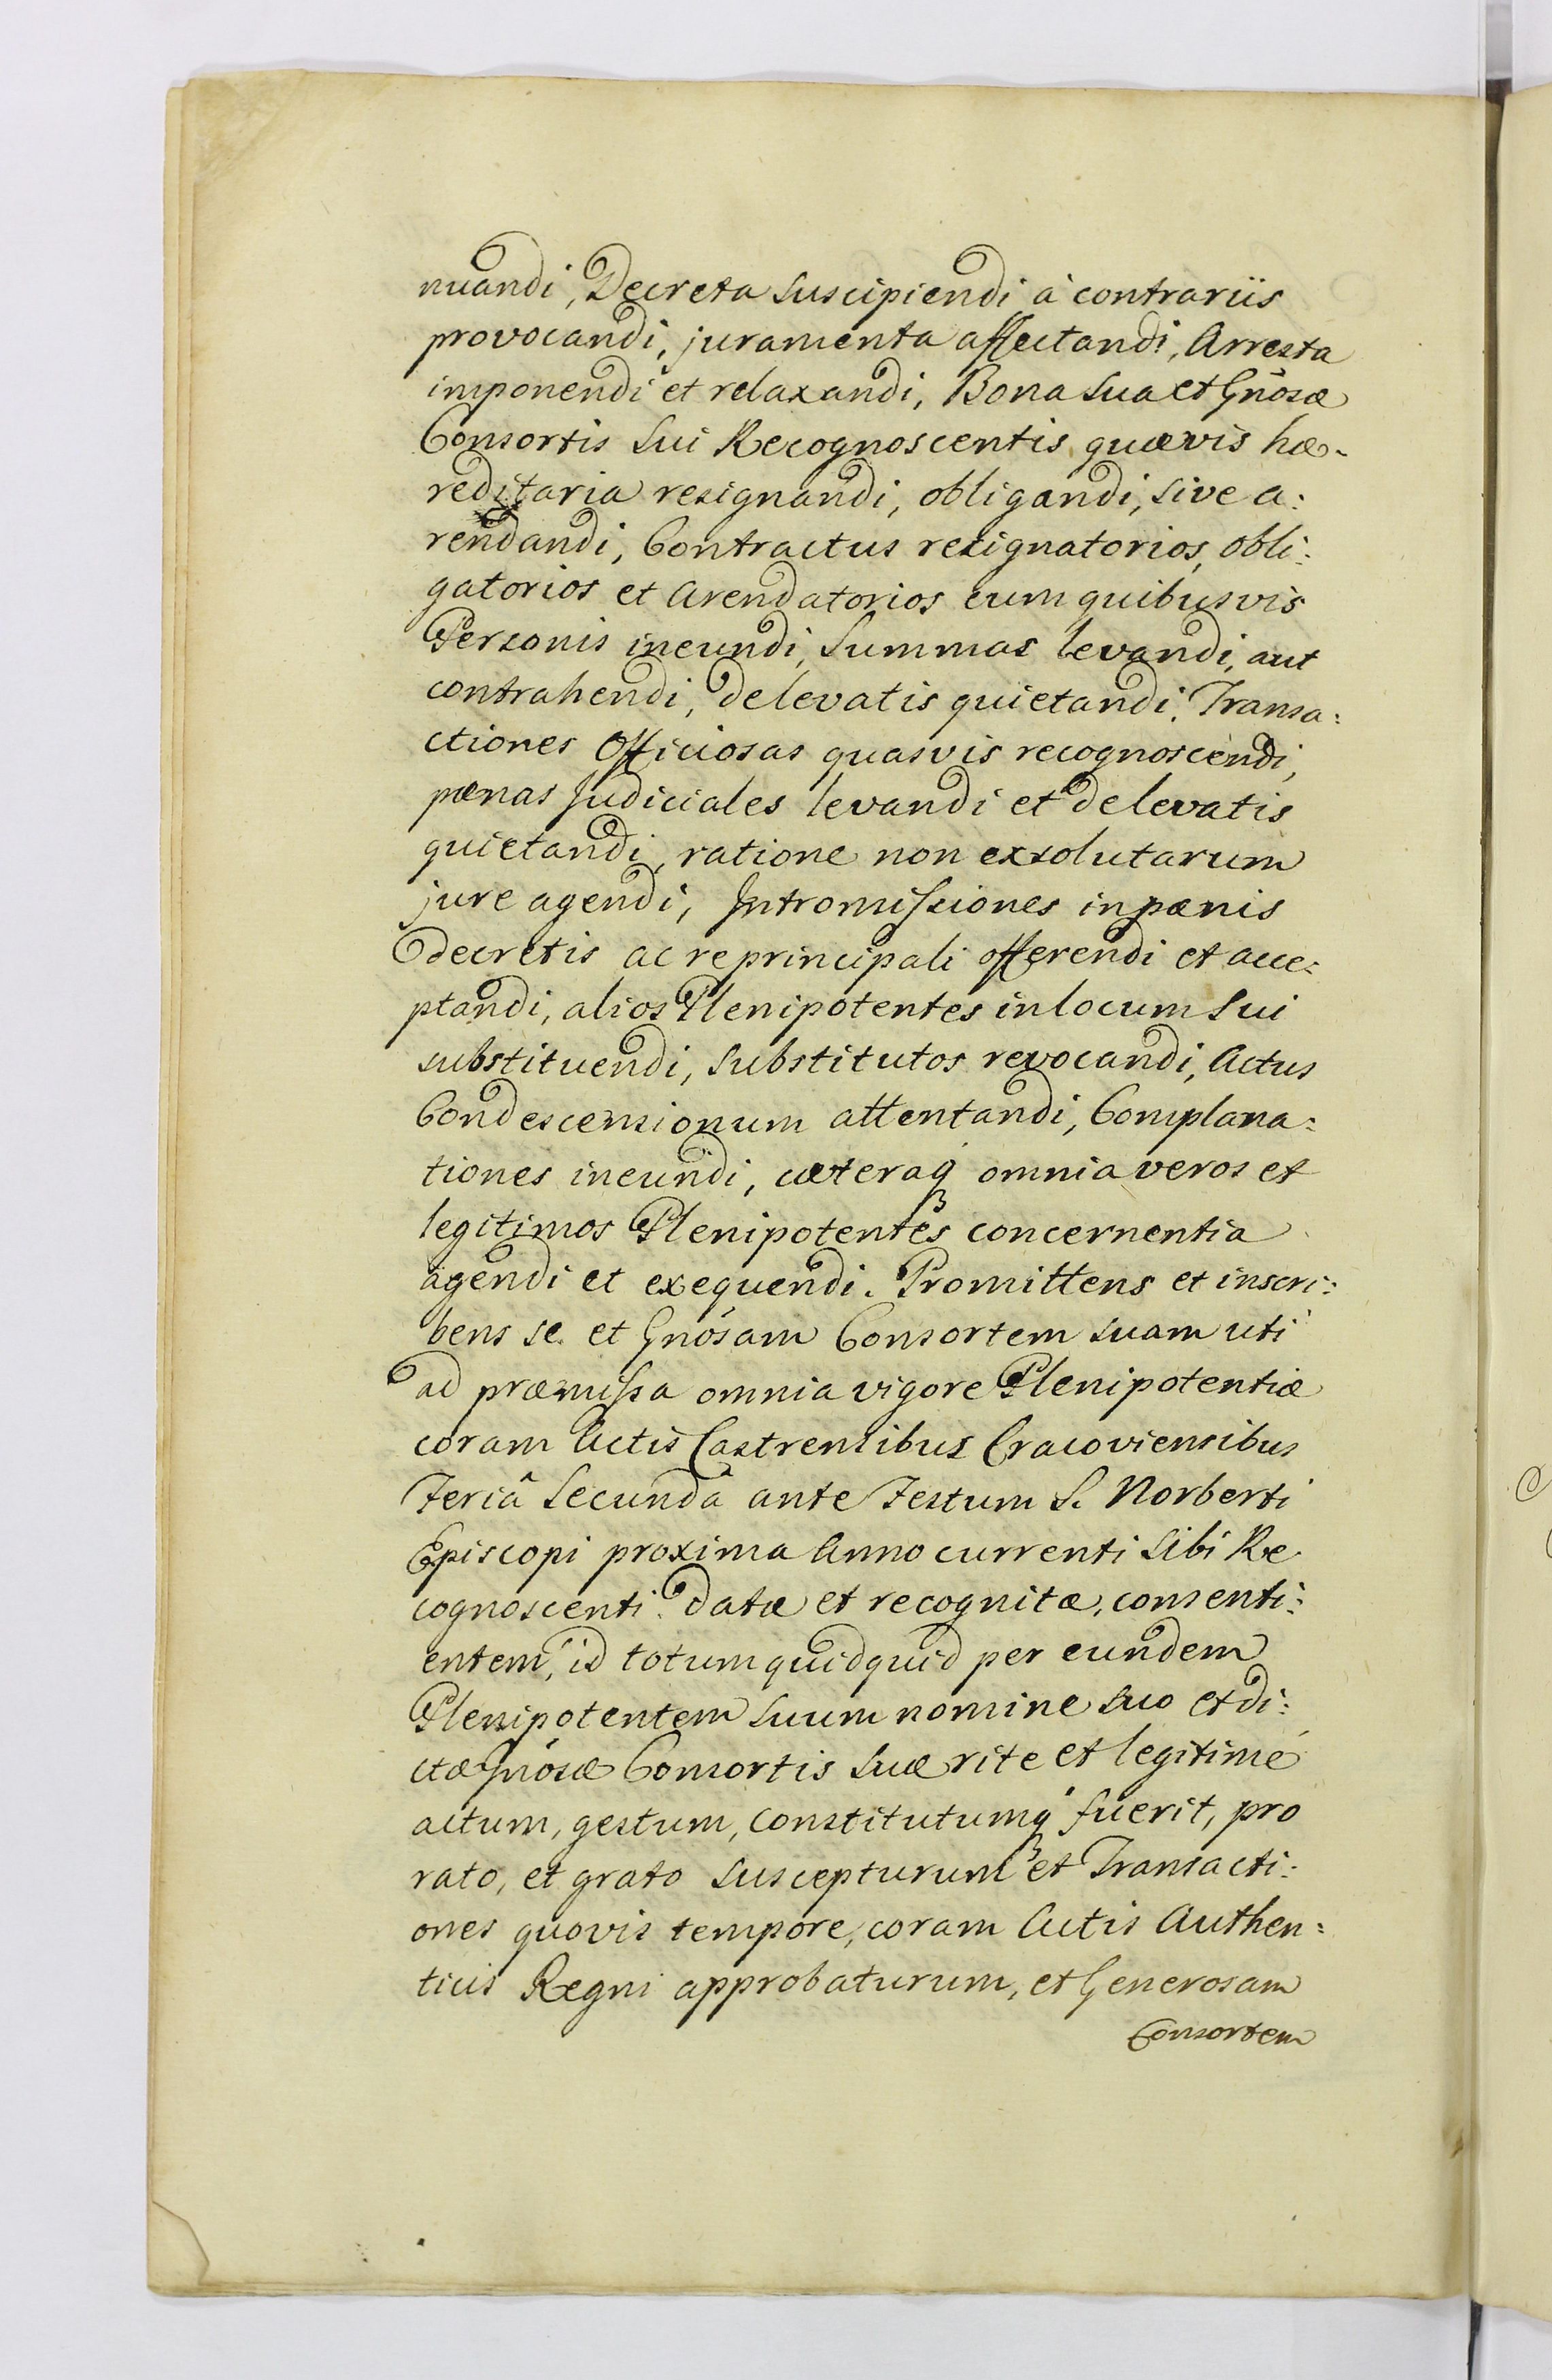 nuandi, Decreta suscipiendi à contrariis
provocandi, juramenta affectandi, Arresta
imponendi et relaxandi, Bona sua et Gnosæ
Consortis sui Recognoscentis quævis hæ-
reditaria resignandi, obligandi, sive a:
rendandi, Contractus resignatorios, obli:
gatorios et Arendatorios cum quibusvis
Personis ineundi, Summas levandi, aut
contrahendi, de levatis quietandi, Transa:
ctiones Officiosas quasvis recognoscendi,
pænas Judiciales levandi et de levatis
quietandi, ratione non exsolutarum
jure agendi, Intromissiones in pænis
decretis ac re principali offerendi et acce:
ptandi, alios Plenipotentes in locum sui
substituendi, substitutos revocandi, Actus
Condescensionum attentandi, Complana:
tiones ineundi, cæteraq3 omnia veros et
legitimos Plenipotentes concernentia
agendi et exequendi. Promittens et inscri:
bens se et Gnósam Consortem suam uti
ad præmissa omnia vigore Plenipotentiæ
coram Actis Castrensibus Cracoviensibus
Feriâ Secundâ ante Festum S. Norberti
Episcopi proxima Anno currenti sibi Re
cognoscenti datæ et recognitæ, consenti:
entem, id totum quidquid per eundem
Plenipotentem suum nomine suo et di:
ctæ Gnósæ Consortis suæ rite et legitimé
actum, gestum, constitutumq3 fuerit, pro
rato, et grato suscepturum et Transacti:
ones quovis tempore, coram Actis Authen:
ticis Regni approbaturum, et Generosam
Consortem